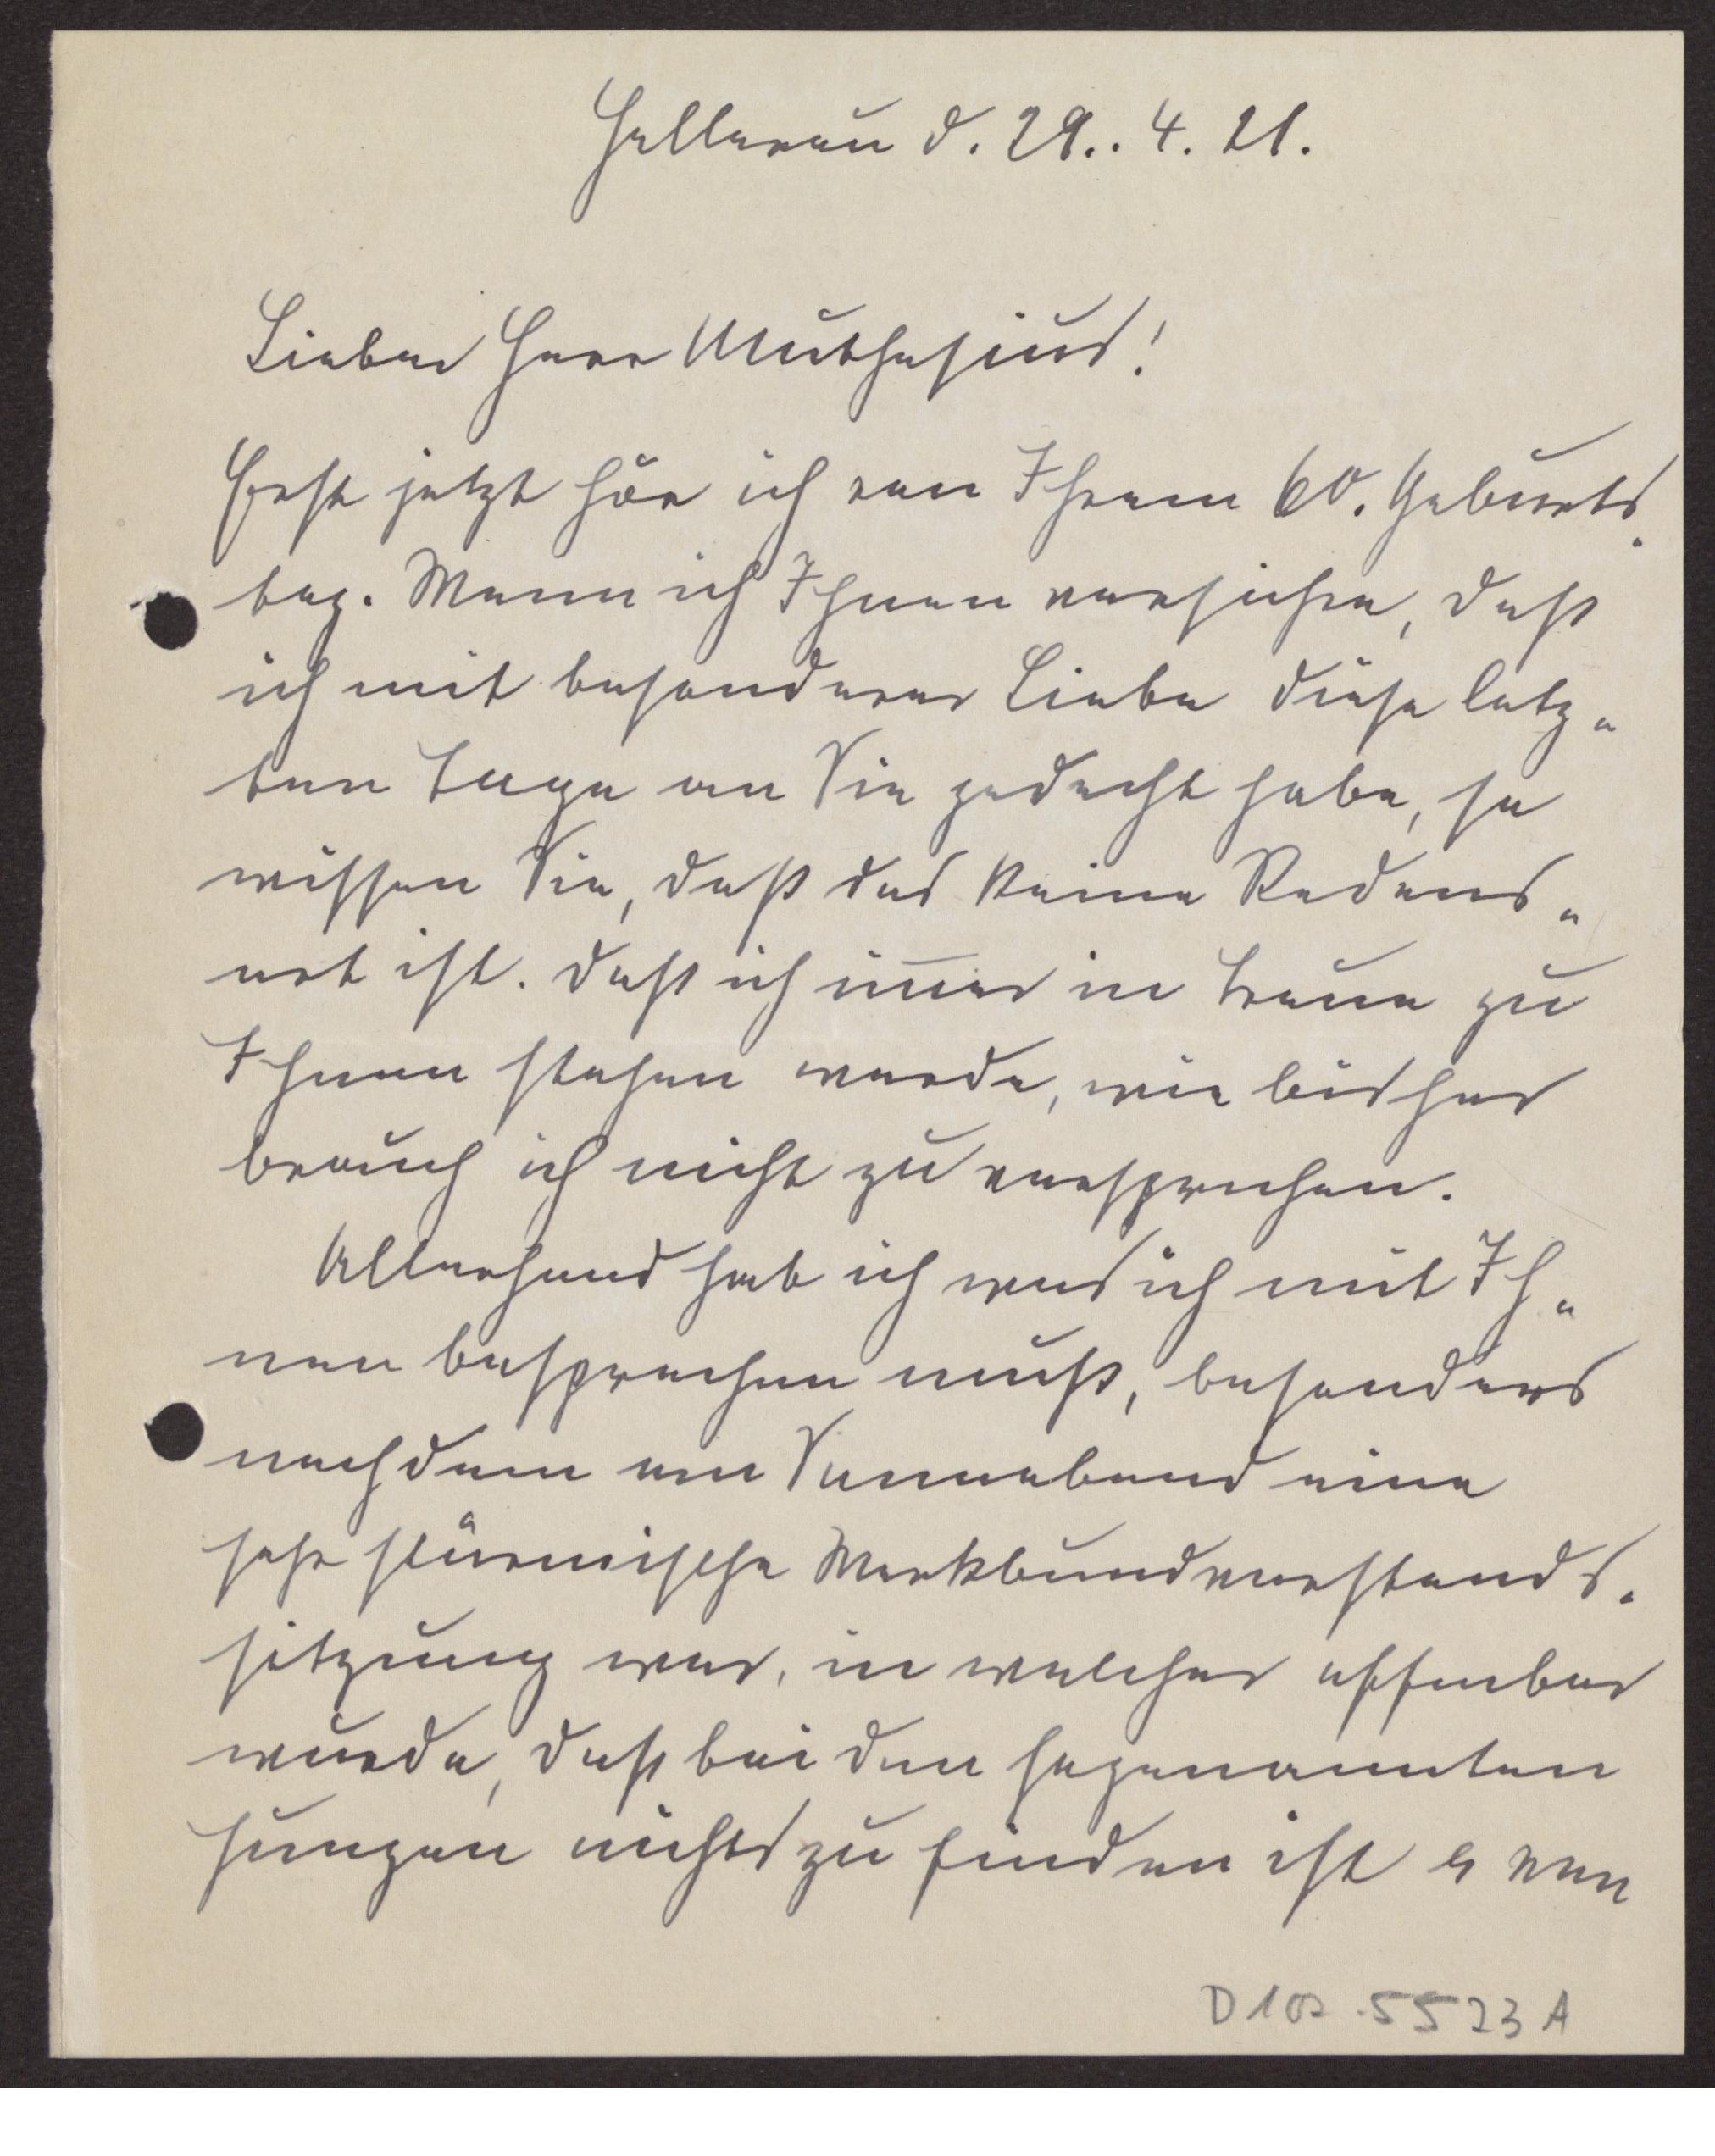 Hellerau d. 29.. 4. 21.
Lieber Herr Muthesius!
Erst jetzt hör ich von Ihrem 60. Geburts-
tag. Wenn ich Ihnen versichre, daß
ich mit besonderer Liebe diese letz-
ten Tage an Sie gedacht habe, so
wissen Sie, daß das keine Redens-
art ist. Daß ich im̅er in Treue zu
Ihnen stehen werde, wie bisher
brauch ich nicht zu versprechen.
Allerhand hab ich was ich mit Ih-
nen besprechen muß, besonders
nachdem am Sonnabend eine
sehr stürmische Werkbundvorstands-
sitzung war, in welcher offenbar
wurde, daß bei den sogenannten
Jungen nichts zu finden ist als von
D 102-5523 A